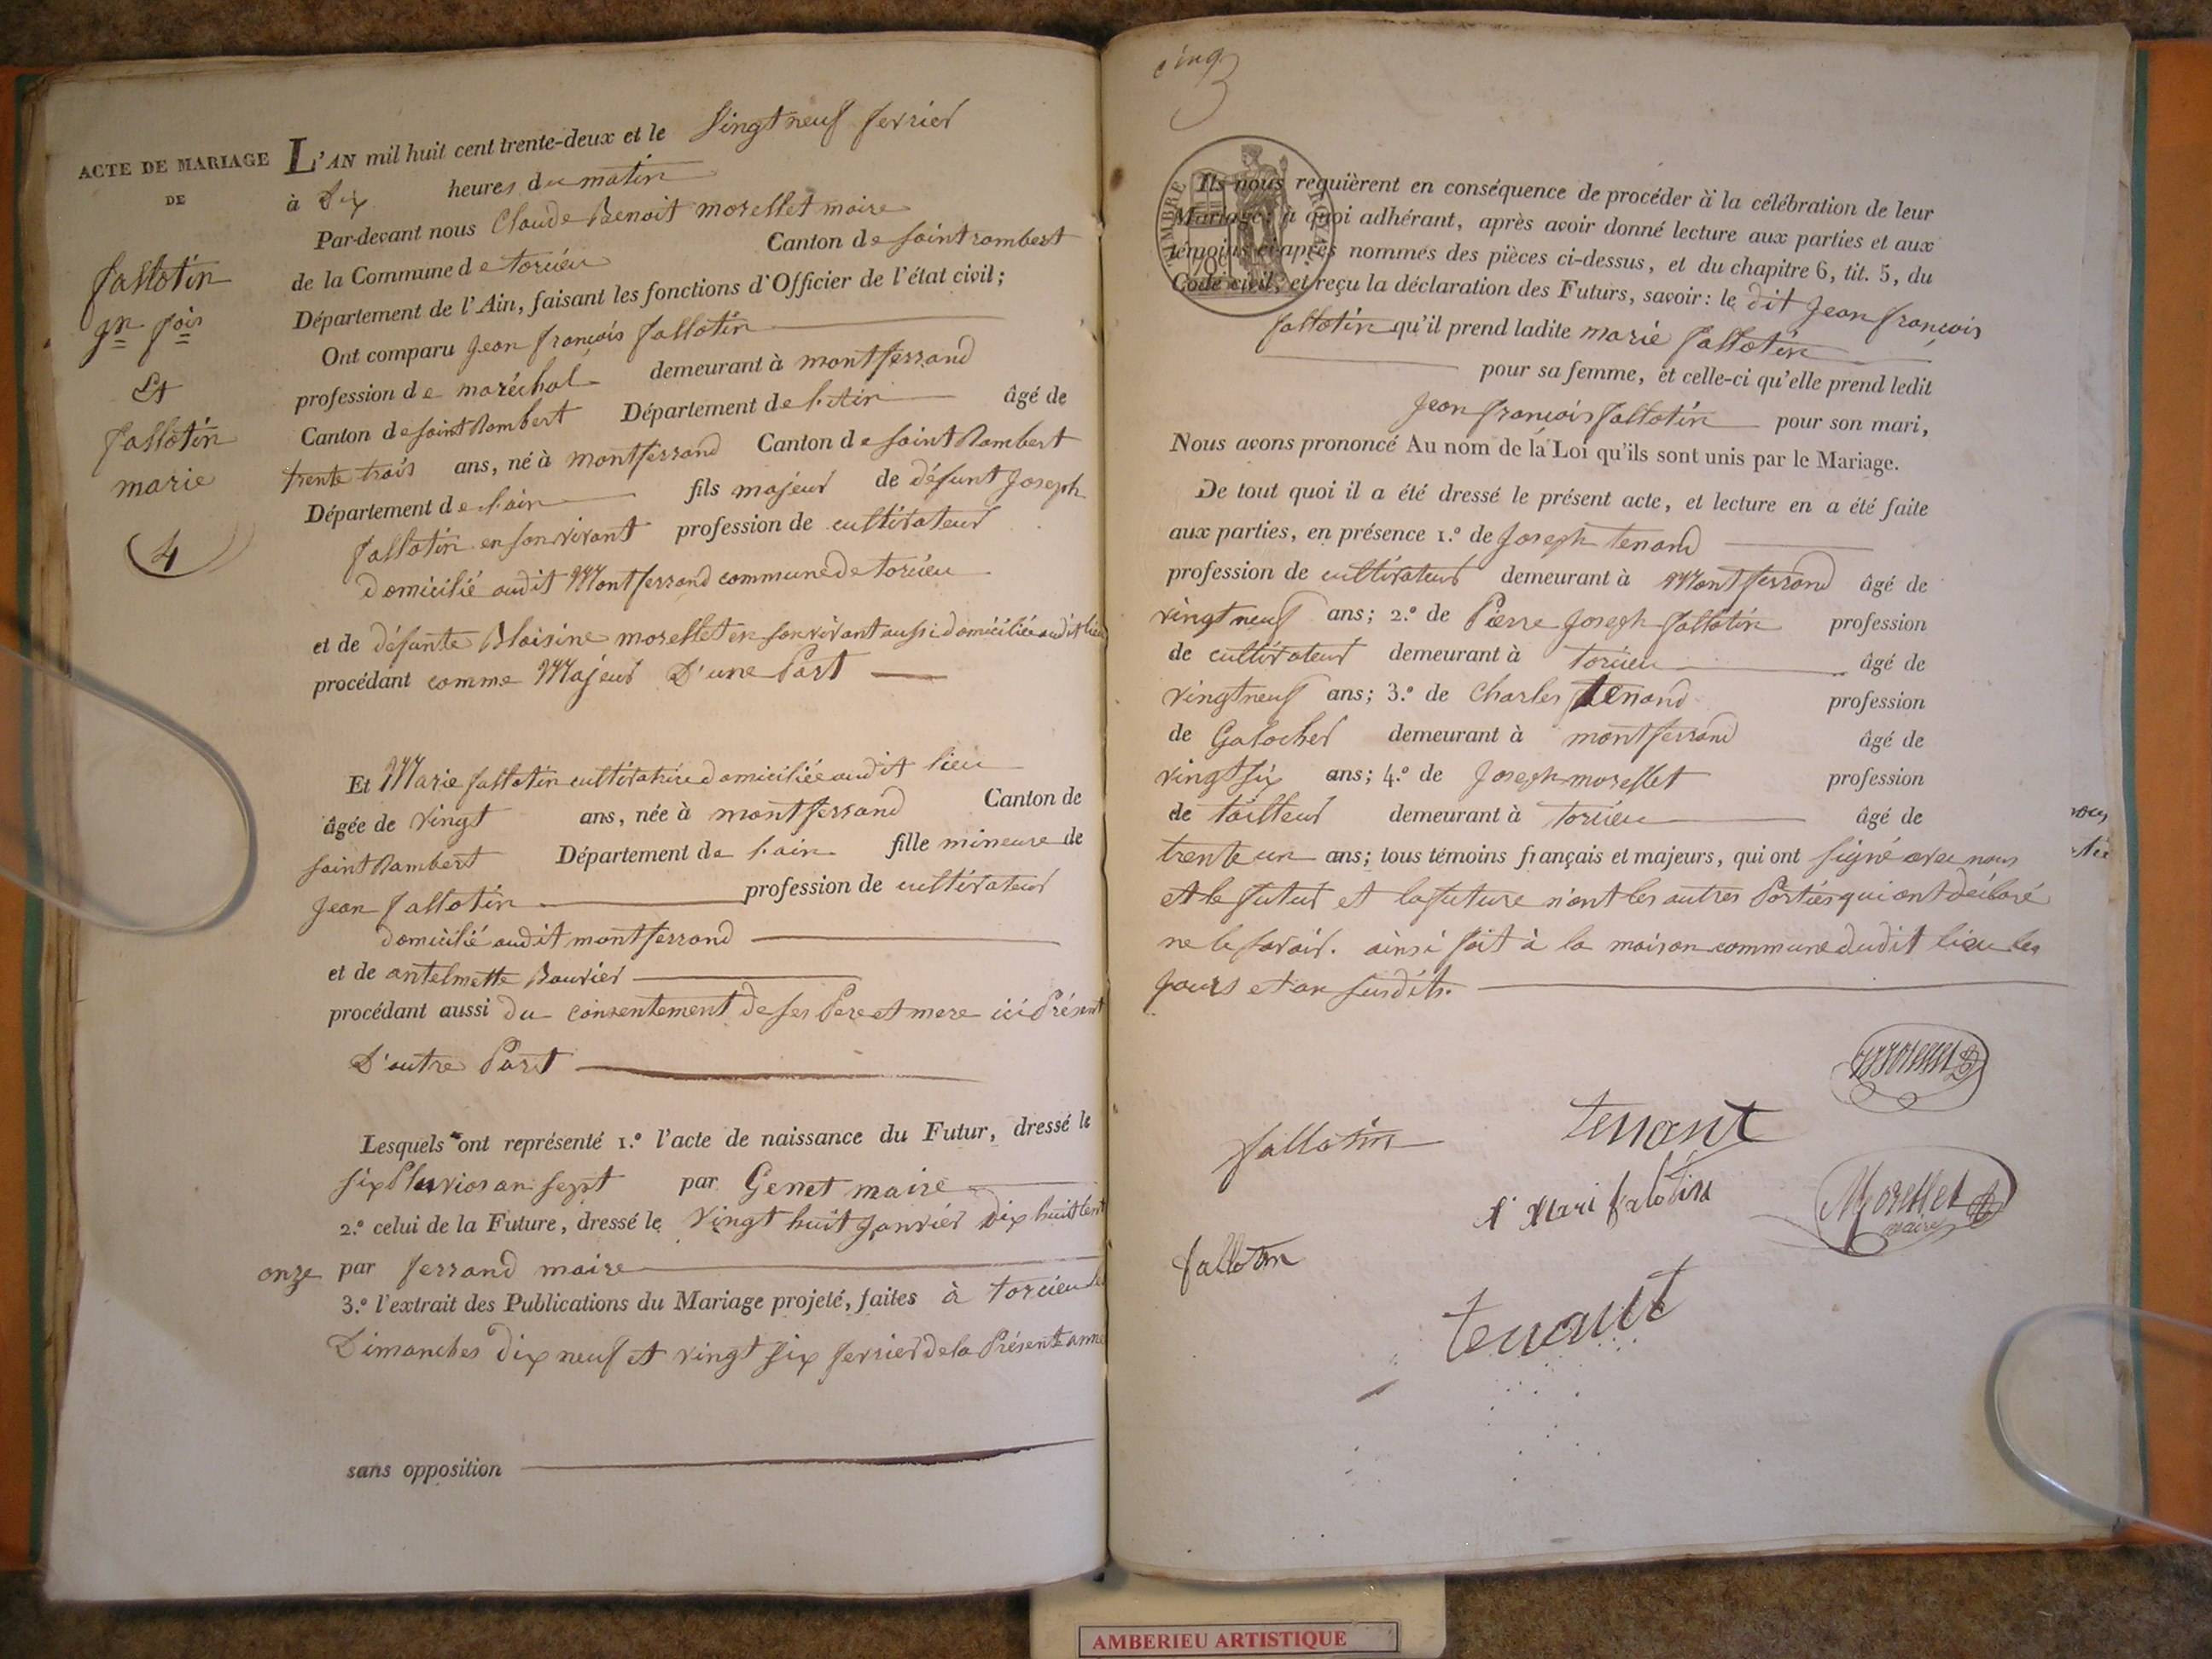 ACTE DE MARIAGE
DE
fallotin
jn fois
Et
fallotin
marie
4
L'AN mil huit cent trente-deux et le vingt neuf fevrier
à Dix heures du matin
Par-devant nous Claude Benoit morellet maire
de la Commune de torcieu Canton de saint rambert
Département de l'Ain, faisant les fonctions d'Officier de l'état civil;
Ont comparu jean françois fallotin
profession de maréchal demeurant à montferrand
Canton de saint Rambert Département de l'ain âgé de
trente trois ans, né à montferrand Canton de saint Rambert
Département de l'ain fils majeur de défunt joseph
fallotin en son vivant profession de cultivateur
domicilié audit Montferrand commune de torcieu
et de défunte Blaisine morellet en son vivant aussi domiciliée audit lieu
procédant comme Majeur D'une Part
Et Marie fallotin cultivatrice domiciliée audit lieu
âgée de vingt ans, née à montferrand Canton de
saint Rambert Département de l'ain fille mineure de
jean fallotin profession de cultivateur
domicilié audit montferrand
et de antelmette Bouvier
procédant aussi du consentement de ses Pere et mere ici Présent
D'autre Part
Lesquels ont représenté 1.º l'acte de naissance du Futur, dressé le
six Pluvios an sept par Genet maire
2.º celui de la Future, dressé le vingt huit janvier dix huit cent
onze par ferrand maire
3.º l'extrait des Publications du Mariage projeté, faites à torcieu les
Dimanches dix neuf et vingt six fevrier de la Présente anne
sans opposition
cinq
TIMBRE ROYAL
Ils nous requièrent en conséquence de procéder à la célébration de leur
Mariage; à quoi adhérant, après avoir donné lecture aux parties et aux
témoins ci-après nommés des pièces ci-dessus, et du chapitre 6, tit. 5, du
Code civil, et reçu la déclaration des Futurs, savoir: le dit jean françois
fallotin qu'il prend ladite marie fallotin
pour sa femme, et celle-ci qu'elle prend ledit
jean françois fallotin pour son mari,
Nous avons prononcé Au nom de la Loi qu'ils sont unis par le Mariage.
De tout quoi il a été dressé le présent acte, et lecture en a été faite
aux parties, en présence 1.º de joseph tenand
profession de cultivateur demeurant à Montferrand âgé de
vingt neuf ans; 2.º de Pierre joseph fallotin profession
de cultivateur demeurant à torcieu âgé de
vingt neuf ans; 3.º de Charles tenand profession
de Galocher demeurant à montferrand âgé de
vingt six ans; 4.º de joseph morellet profession
de tailleur demeurant à torcieu âgé de
trente un ans; tous témoins français et majeurs, qui ont signé avec nous
et le futur et la future n'ont les autres Parties qui ont déclaré
ne le savoir. ainsi fait à la maison commune dudit lieu les
jours et an susdits.
morellet
fallotin
tenant
Mari falotin
Morellet
maire
fallotin
tenant
AMBERIEU ARTISTIQUE